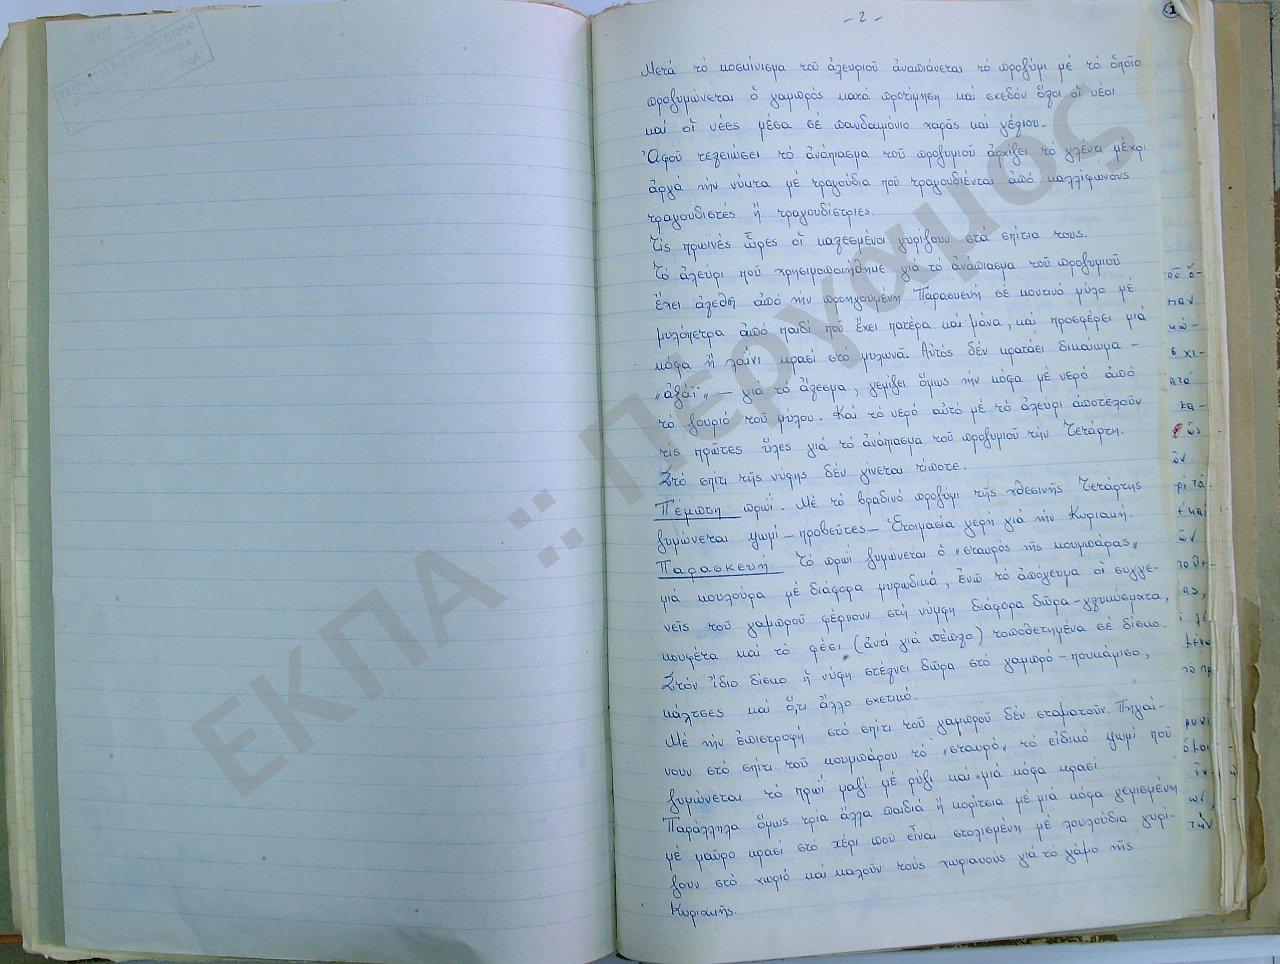 - 2 -
Μετά τό κοσκίνισμα τοῦ ἀλευριοῦ ἀναπιάνεται τό προζύμι μέ τό ὁποῖο
προζυμώνεται ὁ γαμπρός κατά προτίμηση καί σχεδόν ὅλοι οἱ νέοι
καί οἱ νέες μέσα σέ πανδαιμόνιο χαρᾶς καί γέλιου.
Ἀφοῦ τελειώσει τό ἀνάπιασμα τοῦ προζυμιοῦ ἀρχίζει τό γλέντι μέχρι
ἀργά τήν νύκτα μέ τραγούδια πού τραγουδιένται ἀπό καλλίφωνους
τραγουδιστές ἤ τραγουδίστριες.
Τίς πρωϊνές ὧρες οἱ καλεσμένοι γυρίζουν στά σπίτια τους.
Τό ἀλεύρι πού χρησιμοποιήθηκε γιά τό ἀνάπιασμα τοῦ προζυμιοῦ
ἔχει ἀλεθῆ ἀπό τήν προηγουμένη Παρασκευή σέ κοντινό μύλο μέ
μυλόπετρα ἀπό παιδί πού ἔχει πατέρα καί μάνα, καί προσφέρει μιά
κόφα ἤ λαΐνι κρασί στό μυλωνᾶ. Αὐτός δέν κρατάει δικαίωμα -
"ἀξάϊ" - γιά τό ἄλεσμα, γεμίζει ὅμως τήν κόφα μέ νερό ἀπό
τό ζουριό τοῦ μύλου. Καί τό νερό αὐτό μέ τό ἀλεύρι ἀποτελοῦν
τίς πρῶτες ὕλες γιά τό ἀνάπιασμα τοῦ προζυμιοῦ τήν Τετάρτη.
Στό σπίτι τῆς νύφης δέν γίνεται τίποτε.
Πέμπτη πρωΐ. Μέ τό βραδινό προζύμι τῆς χθεσινῆς Τετάρτης
ζυμώνεται ψωμί - προβεῦτες - Ἑτοιμασία γερή γιά τήν Κυριακή.
Παρασκευή Τό πρωΐ ζυμώνεται ὁ "σταυρός τῆς κουμπάρας"
μιά κουλούρα μέ διάφορα μυρωδικά, ἐνῶ τό ἀπόγευμα οἱ συγγε-
νεῖς τοῦ γαμπροῦ φέρνουν στή νύμφη διάφορα δῶρα - γλυκύσματα,
κουφέτα καί τό φέσι (ἀντί γιά πέπλο) τοποθετημένα σέ δίσκο.
Στόν ἴδιο δίσκο ἡ νύφη στέλνει δῶρα στό γαμπρό - πουκάμισο,
κάλτσες καί ὅ,τι ἄλλο σχετικό.
Μέ τήν ἐπιστροφή στό σπίτι τοῦ γαμπροῦ δέν σταματοῦν. Πηγαί-
νουν στό σπίτι τοῦ κουμπάρου τό "σταυρό" τό εἰδικό ψωμί πού
ζυμώνεται τό πρωΐ μαζί μέ ρύζι καί μιά κόφα κρασί
Παράλληλα ὅμως τρία ἄλλα παιδιά ἤ κορίτσια μέ μιά κόφα γεμισμένη
μέ μαῦρο κρασί στό χέρι πού εἶναι στολισμένη μέ λουλούδια γυρί-
ζουν στό χωριό καί καλοῦν τούς χωριανούς γιά τό γάμο τῆς
Κυριακῆς.
ΕΚΠΑ :: Πέργαμος